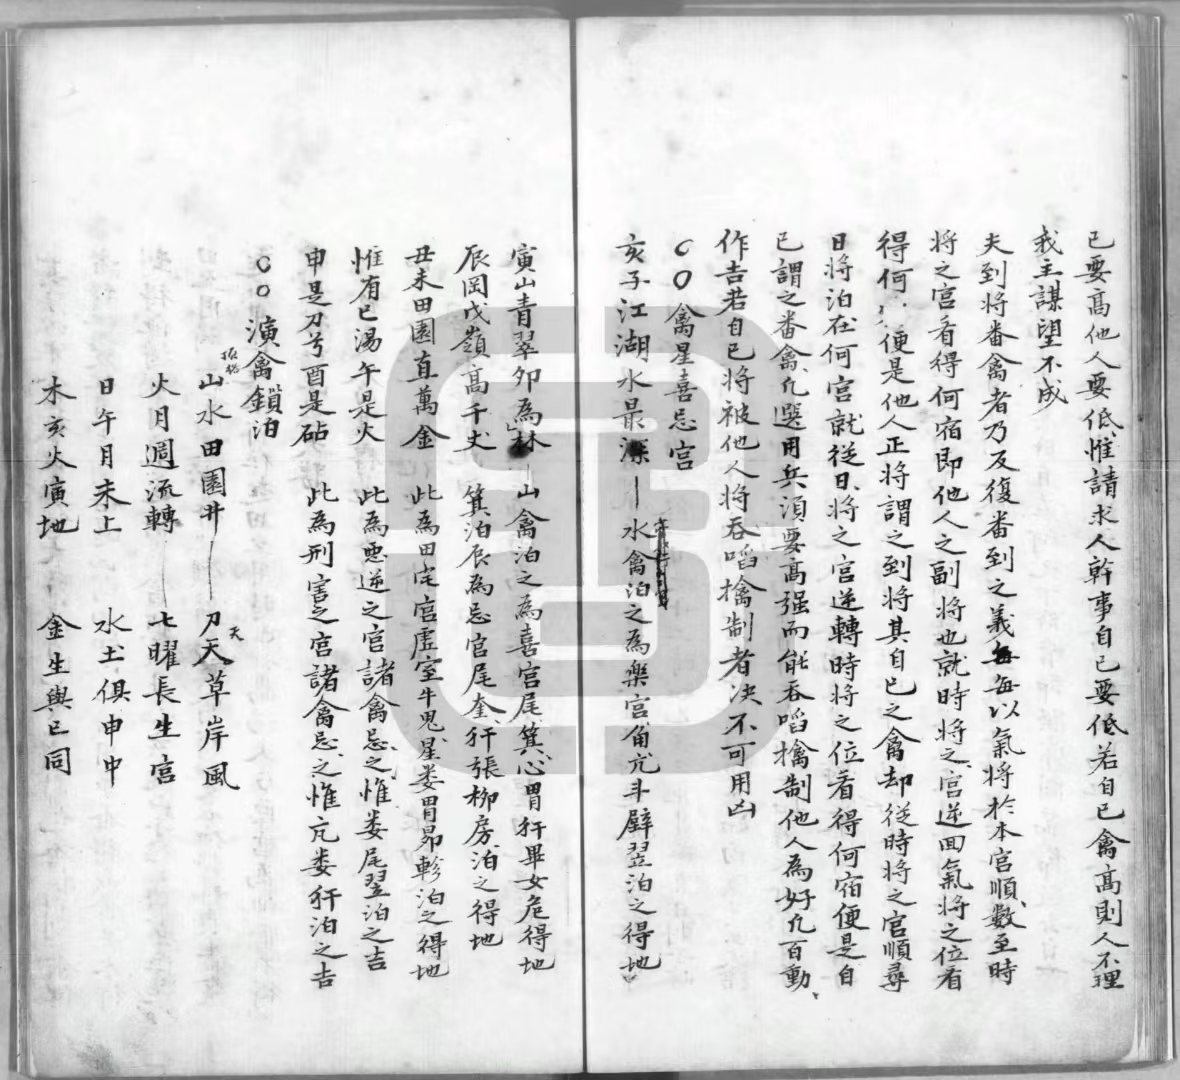 己要高他人要低惟請求人幹事自己要低若自己禽高則人不理
我主謀望不成
夫到將番禽者乃反復番到之義每每以氣將於本宮順數至時
將之宮看得何宿即他人之副將也就時將之宮逆回氣將之位看
得何便是他人正將謂之到將其自己之禽却從時將之宮順尋
日將泊在何宮就從日將之宮逆轉時將之位看得何宿便是自
己謂之番禽凡選用兵須要高强而能吞啗擒制他人為好凡百動
作吉若自己將被他人將吞啗擒制者决不可用凶
○○禽星喜忌宮
亥子江湖水最深丨水禽泊之為樂宮角亢斗壁翌泊之得地
寅山青翠夘為林丨山禽泊之為喜宮尾箕心胃犴畢女危得地
辰岡戌嶺高千丈 箕泊辰為忌官尾奎犴張柳房泊之得地
丑未田園直萬金 此為田宅宮虛室牛鬼星娄胃昴軫泊之得地
惟有巳湯午是火 此為悪逆之宮諸禽忌之惟娄尾翌泊之吉
申是刀兮酉是砧 此為刑害之宮諸禽忌之惟亢娄犴泊之吉
○○演禽鎖泊
山水田園井——刀天草岸風
天
火月週流轉——七曜長生宮
日午月未上 水土俱申中
木亥火寅地 金生與巳同